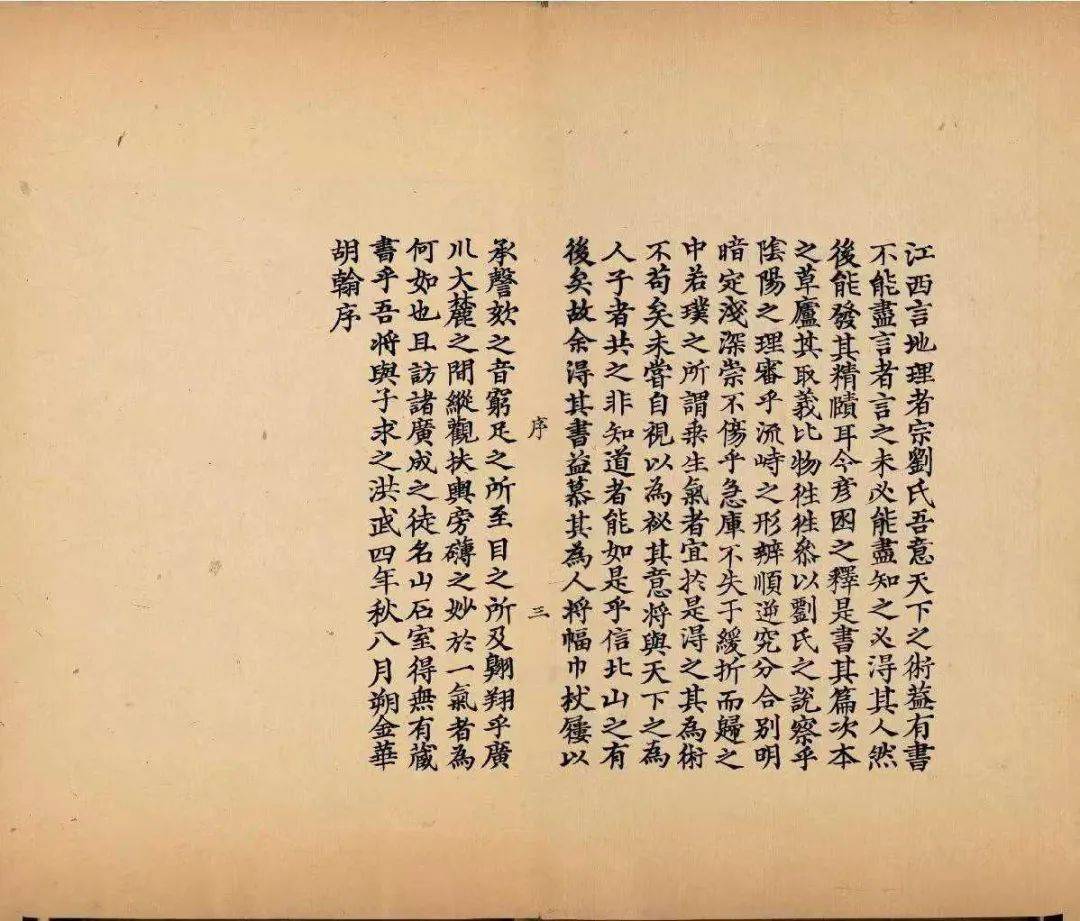 江西言地理者宗劉氏吾意天下之術葢有書
不能盡言者言之未必能盡知之必得其人然
後能發其精賾耳今彦困之釋是書其篇次本
之草廬其取義比物徃徃叅以劉氏之說察乎
陰陽之理審乎流峙之形辨順逆究分合别明
暗定淺深崇不傷乎急庫不失于緩折而歸之
中若璞之所謂乗生氣者宜於是得之其為術
不苟矣未嘗自視以為祕其意將與天下之為
人子者共之非知道者能如是乎信北山之有
後矣故余得其書益慕其為人将幅巾杖屨以
序
三
承謦欬之音窮足之所至目之所及翺翔乎廣
川大麓之間縱觀扶輿旁礴之妙於一氣者為
何如也且訪諸廣成之徒名山石室得無有蔵
書乎吾将與子求之洪武四年秋八月朔金華
胡翰序